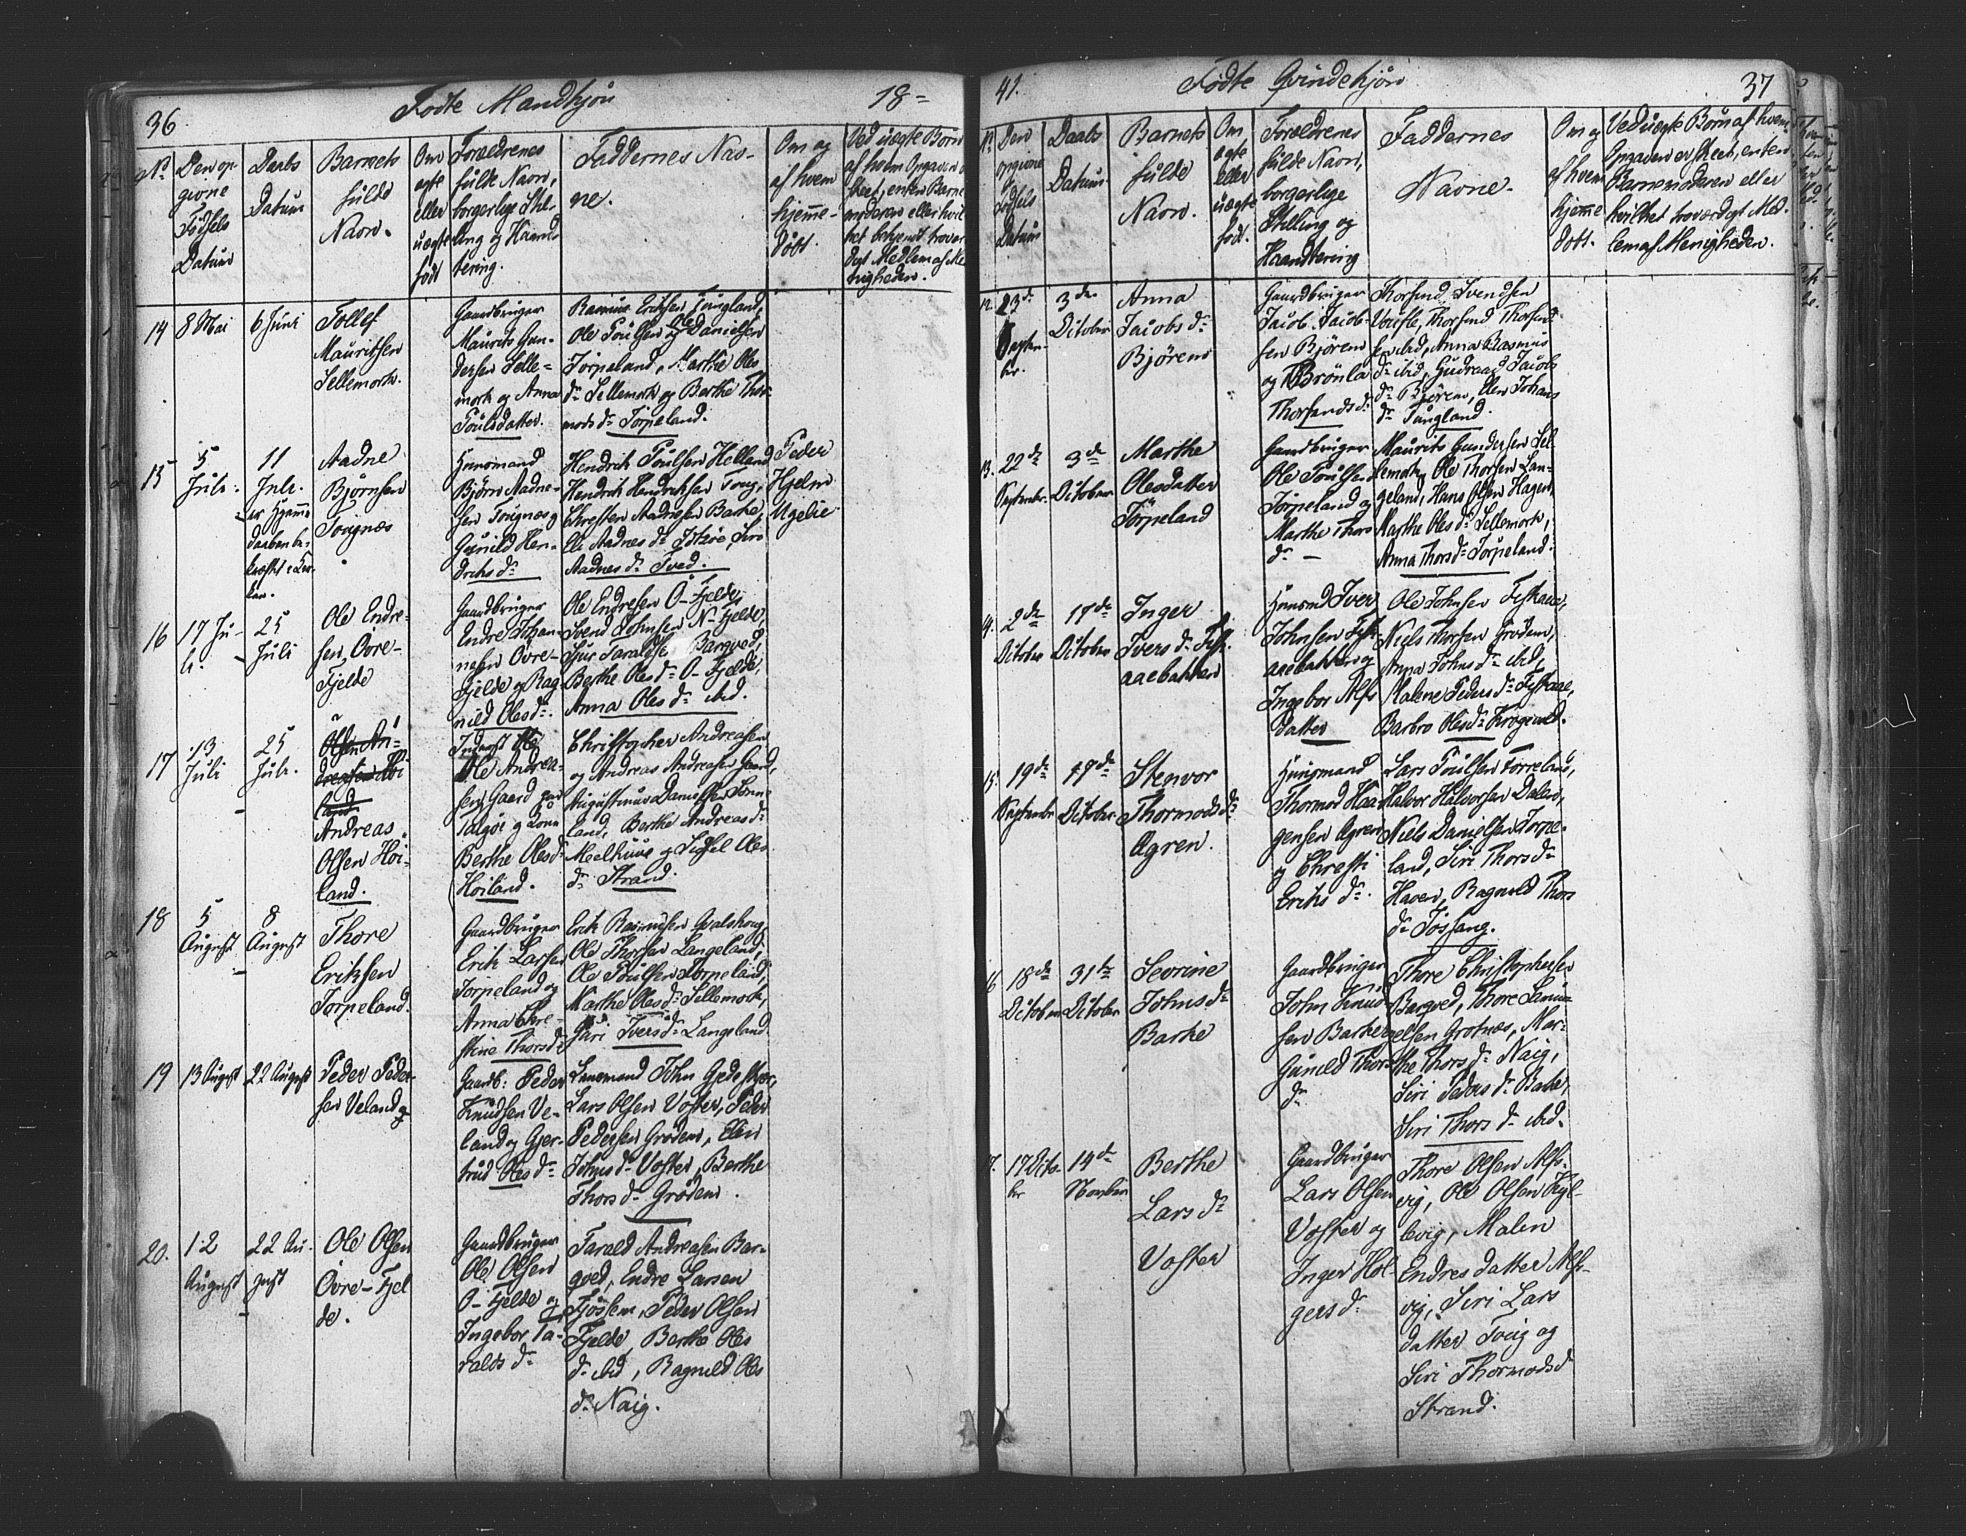 36
Fødte Mandkjøn
18=
No
Den op-
givne
Fødsels
Datum
Daabs
Datum
Barnets
fulde
Navn.
Om
ægte
eller
uægte
fød
Forældrenes
fulde Navn,
borgerlige Stil-
ling og Haand-
tering.
Faddernes Nav-
ne.
Om og
af hvem
hjemme-
døbt.
Ved uægte Børn
af hvem Opgaven er
skeet, enten Barne-
moderen eller hvil-
ket bekjendt trovær-
digt Medlem af Me-
nigheden.
14
8 Mai
6 Juni
Tollef
Mauritsen
Sellemork.
Gaardbruger
Maurits Gun-
dersen Selle-
mork og Anna
Poulsdatter.
Rasmus Eriksen Tungland,
Ole Poulsen og Danielsen
Torpeland, Marthe Oles
dr Sellemork og Berthe Thor-
mods dr Torpeland.
15
5
Juli.
11
Juli.
Aadne
Bjørnsen
Tougnæs
Huusmand
Bjørn Aadne-
sen Tougnæs og
Gunild Hen-
driks dr
Hendrik Poulsen Helland
Hendrik Hendriksen
Christen Aadnesen Barke,
Eli Aadnes dr Siri
Aadnes dr Tved.
Peder
Hjelm
Ugelie
16
17 Ju-
li.
25
Juli
Ole Endre-
sen Øvre-
Fjelde
Gaardbruger
Endre Johan-
nesen Øvre-
Fjelde og Rag-
nild Olesdr.
Ole Endresen Ø-Fjelde,
Svend Johnsen N-Fjelde,
Sjur Taraldsen Bargved,
Berthe Oles dr Ø-Fjelde,
Anna Oles dr ibid.
17
13
Juli
25
Juli.
Andreas
Olsen Høi-
land.
Ole Andrea-
sen Gaard paa
Talgøe og Kone
Berthe Oles dr
Høiland.
Christopher Andreasen
og Andreas Andreasen Gaard,
Augustinus Danielsen Sønne-
land, Berthe Andreas dr
Meelhuus og Sissel Oles
dr Strand.
18
5
August
8
August
Thore
Eriksen
Torpeland.
Gaardbruger
Erik Larsen
Torpeland og
Anna Chri-
stine Thorsdr
Erik Rasmusen Qvalshoug
Ole Thorsen Langeland,
Ole Poulsen Torpeland
Marthe Oles dr Sellemork,
Guri Ivers dr Langeland
19
13 August
22 August
Peder Peder-
sen Veland
Gaardb: Peder
Knudsen Ve-
land og Gjer-
trud Oles dr
Lensmand John
Lars Olsen Voster, Peder
Pedersen Grødem, Elen
Johns dr Voster, Berthe
Thors dr Grødem.
20.
12
August
22 Au-
gust
Ole Olsen
Øvre-Fjel-
de.
Gaardbruger
Ole Olsen
Ø-Fjelde og
Ingebor Ta-
ralds dr
Tarald Andreasen Bar-
gved, Endre Larsen
Fjøslem, Peder Olsen
Fjelde, Berthe Oles
dr ibid, Ragnild Oles
dr Naig.
41.
Fødte Qvindekjøn
37
N.
Den
opgivne
Fødsels
Datum
Daabs
Datum
Barnets
fulde
Navn.
Om
ægte
eller
uægte
fød.
Forældrenes
fulde Navn,
borgerlige
Stilling og
Haandtering
Faddernes
Navne.
Om og
af hvem
hjemme
døbt.
Ved uægte Børn af hvem
Opgaven er skeet, enten
Barnemoderen eller
hvilket troværdigt Med-
lem af Menigheden.
12.
23de
Septem-
ber.
3die
October
Anna
Jacobs dr
Bjøren
Gaardbruger
Jacob Jacob-
sen Bjøren
og Brönla
Thorsends dr
Thorsend Svendsen
Voufle, Thorsend Thorsend-
sen ibid, Anna Rasmus
dr ibid, Gudraad Jacobs
dr Bjøren, Elen Johans
dr Tungland.
13.
22de
September
3de
October
Marthe
Olesdatter
Törpeland
Gaardbruger
Ole Poulsen
Torpeland og
Marthe Thors
dr
Maurits Gundersen Sel-
lemork, Ole Thorsen Lan-
geland, Hans Olsen Hagen,
Marthe Oles dr Sellemork,
Anna Thors dr Torpeland.
14.
2de
October
17de
October
Inger
Ivers dr Fisk-
aaebakken
Huusmd Iver
Johnsen Fisk-
aaebakken og
Ingebor Alfs
datter
Ole Johnsen Fiskaae,
Niels Thorsen Grødem,
Anna Johns dr ibid,
Malene Peders dr Fiskaae,
Barbro Oles dr Krogevold.
15.
19de
September
17de
October
Stenvor
Thormods dr
Agren.
Huusmand
Thormod Haa-
gensen Agren
og Christi
Eriks dr
Lars Poulsen Torreland,
Halvor Halvorsen Dalen,
Niels Danielsen Torpe-
land, Siri Thors dr
Haven, Ragnild Thors
dr Tøssang.
16
18de
October
31te
October
Sevrine
Johns dr
Barke
Gaardbruger
John Knud-
sen Barke og
Gunild Thors
dr
Thore Christophersen
Bargved, Thore Samu-
elsen Grotnæs, Mar-
the Thors dr Naig,
Siri Peders dr Barke,
Siri Thors dr ibid.
17.
17 Octo-
ber
14de
November
Berthe
Lars dr
Voster
Gaardbruger
Lars Olsen
Voster og
Inger Hol-
gers dr
Thore Olsen Alfs-
vig, Ole Olsen Fugl-
evig, Malen
Endres datter Alfs-
vig, Siri Lars
datter Tvig og
Siri Thormods dr
Strand.